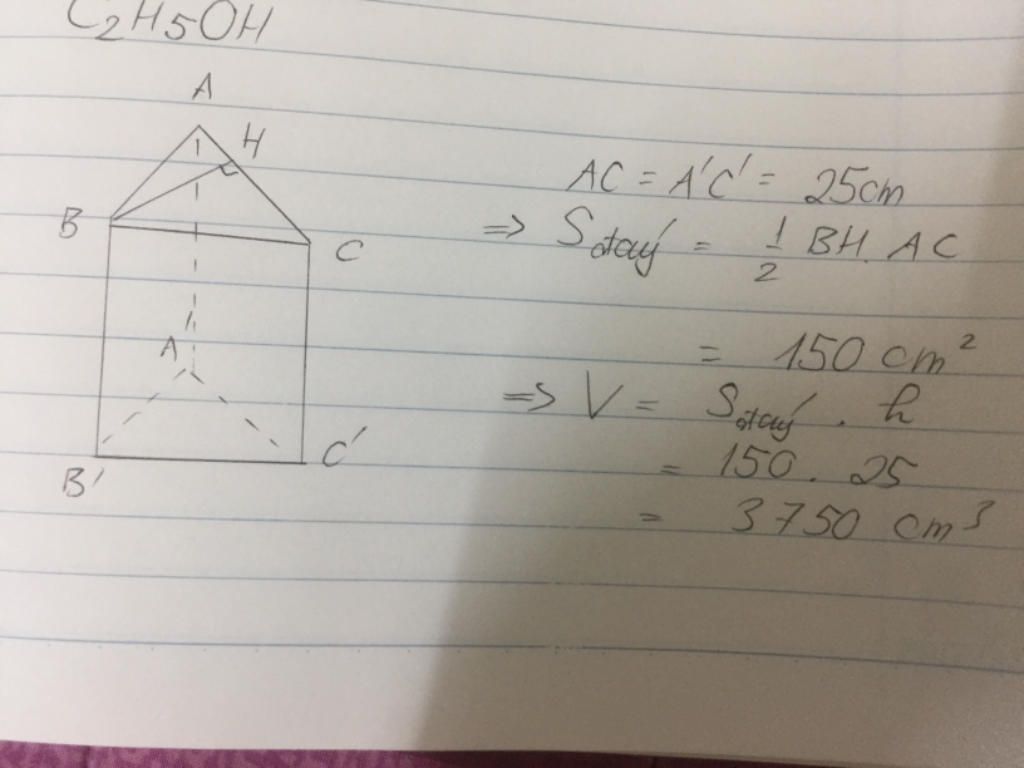 C2H5OH
A
H
B
C
A'
B'
C'
AC = A'C' = 25cm
=> Sđáy = 1/2 BH. AC
= 150 cm²
=> V = Sđáy . h
= 150 . 25
= 3750 cm³